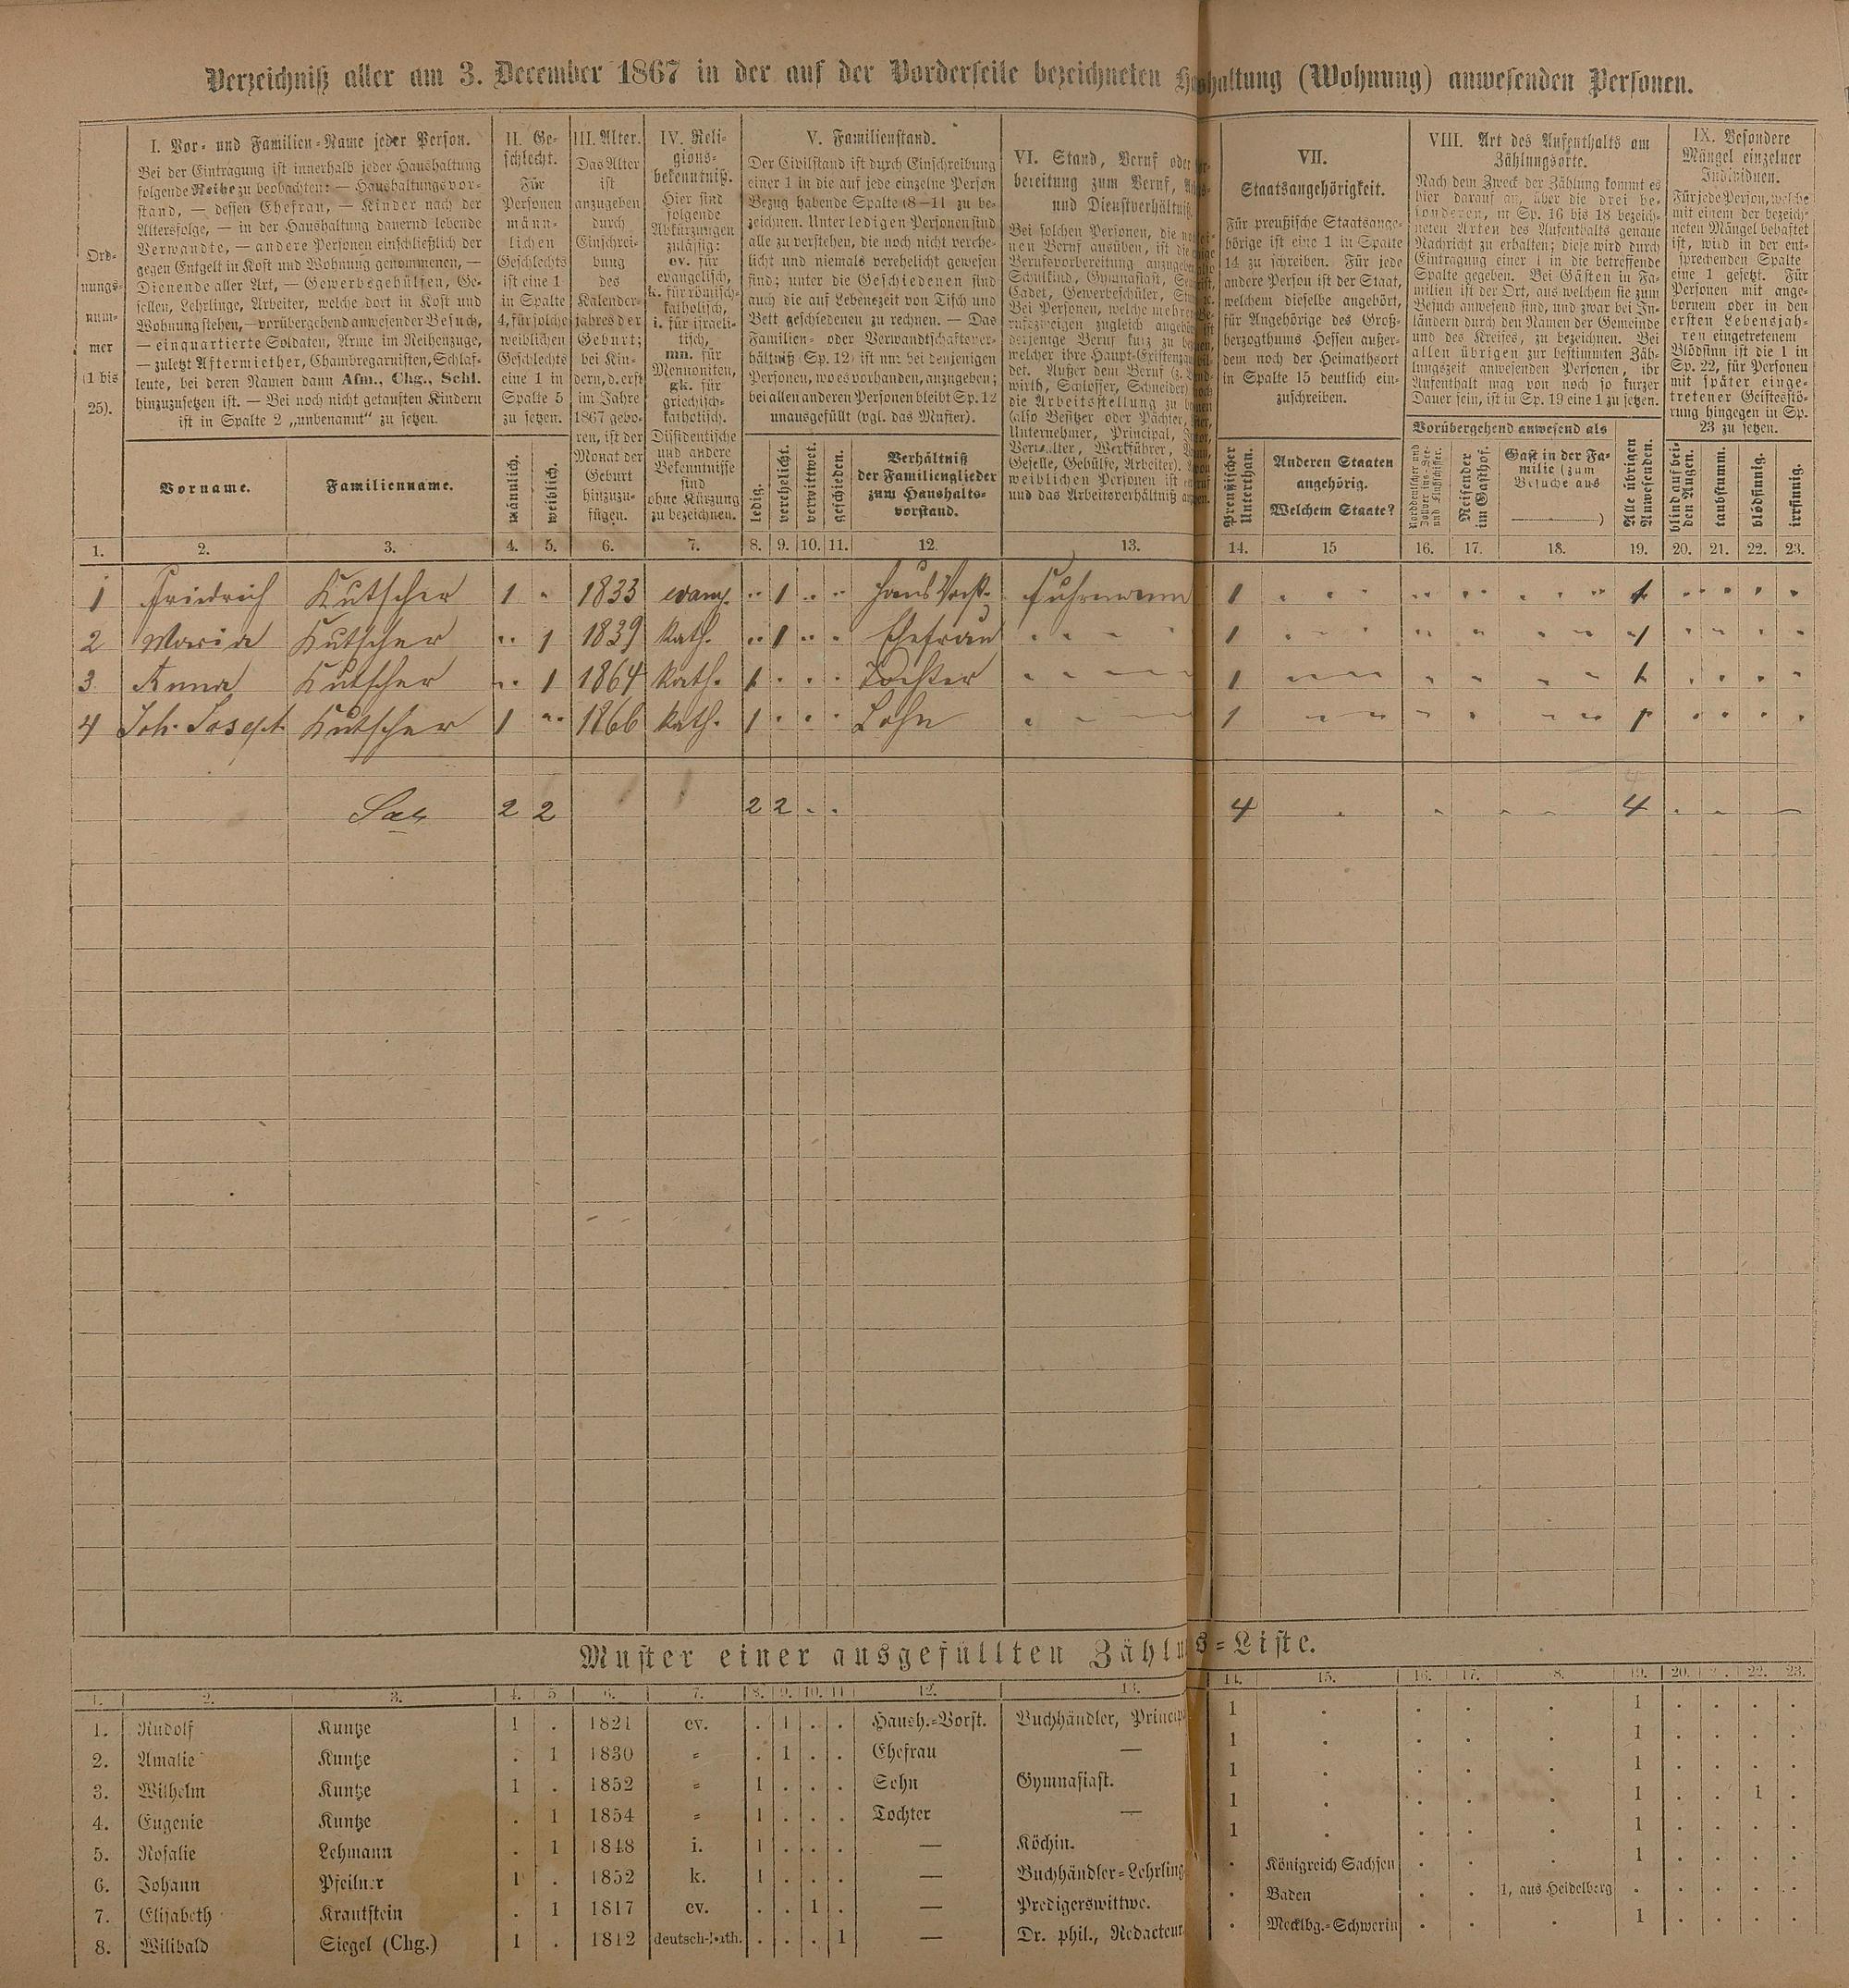 Verzeichniß aller am 3. December 1867 in der auf der Vorderseite bezeichneten haltung (Wohnung) anwesenden Personen.
Ord-
nungs-
num-
mer
(1 bis
25).
I. Vor- und Familien-Name jeder Person.
Bei der Eintragung ist innerhalb jeder Haushaltung
folgende Reihe zu beobachten: — Haushaltungsvor-
stand, — dessen Ehefrau, — Kinder nach der
Altersfolge, — in der Haushaltung dauernd lebende
Verwandte, — andere Personen einschließlich der
gegen Entgelt in Kost und Wohnung genommenen, —
Dienende aller Art, — Gewerbsgehülfen, Ge-
sellen, Lehrlinge, Arbeiter, welche dort in Kost und
Wohnung stehen, — vorübergehend anwesender Besuch,
— einquartierte Soldaten, Arme im Reihenzuge,
— zuletzt Aftermiether, Chambregarnisten, Schlaf-
leute, bei deren Namen dann Afm., Chg., Schl.
hinzuzusetzen ist. — Bei noch nicht getauften Kindern
ist in Spalte 2 „unbenannt“ zu setzen.
Vorname.
Familienname.
II. Ge-
schlecht.
Für
Personen
männ-
lichen
Geschlechts
ist eine 1
in Spalte
4, für solche
weiblichen
Geschlechts
eine 1 in
Spalte 5
zu setzen.
männlich.
weiblich.
III. Alter.
Das Alter
ist
anzugeben
durch
Einschrei-
bung
des
Kalender-
jahres der
Geburt;
bei Kin-
dern, d. erst
im Jahre
1867 gebo-
ren, ist der
Monat der
Geburt
hinzuzu-
fügen.
IV. Reli-
gions-
bekenntniß.
Hier sind
folgende
Abkürzungen
zulässig:
ev. für
evangelisch,
k. für römisch-
katholisch,
i. für israeli-
tisch,
mn. für
Mennoniten,
gk. für
griechisch-
katholisch.
Dissidentische
und andere
Bekenntnisse
sind
ohne Kürzung
zu bezeichnen.
V. Familienstand.
Der Civilstand ist durch Einschreibung
einer 1 in die auf jede einzelne Person
Bezug habende Spalte (8—11) zu be-
zeichnen. Unter ledigen Personen sind
alle zu verstehen, die noch nicht verehe-
licht und niemals verehelicht gewesen
sind; unter die Geschiedenen sind
auch die auf Lebenszeit von Tisch und
Bett geschiedenen zu rechnen. — Das
Familien- oder Verwandtschaftsver-
hältniß (Sp. 12) ist nur bei denjenigen
Personen, wo es vorhanden, anzugeben;
bei allen anderen Personen bleibt Sp. 12
unausgefüllt (vgl. das Muster).
ledig.
verehelicht.
verwittwet.
geschieden.
Verhältniß
der Familienglieder
zum Haushalts-
vorstand.
VI. Stand, Beruf oder
bereitung zum Beruf,
und Dienstverhältniß
Bei solchen Personen, die
nen Beruf ausüben, ist die
Berufsvorbereitung
Schulkind, Gymnasiast,
Cadet, Gewerbeschüler,
Bei Personen, welche mehreren
rufszweigen zugleich
derjenige Beruf kurz zu
welcher ihre Haupt-
det. Außer dem Beruf (z.
wirth, Schlosser, Schneider)
die Arbeitsstellung zu
(also Besitzer oder Pächter,
Unternehmer, Principal,
Verwalter, Werkführer,
Geselle, Gehülfe, Arbeiter).
weiblichen Personen ist
und das Arbeitsverhältniß
VII.
Staatsangehörigkeit.
Für preußische Staatsange-
hörige ist eine 1 in Spalte
14 zu schreiben. Für jede
andere Person ist der Staat,
welchem dieselbe angehört,
für Angehörige des Groß-
herzogthums Hessen außer-
dem noch der Heimathsort
in Spalte 15 deutlich ein-
zuschreiben.
Preußischer
Unterthan.
Anderen Staaten
angehörig.
Welchem Staate?
VIII. Art des Aufenthalts am
Zählungsorte.
Nach dem Zweck der Zählung kommt es
hier darauf an, über die drei be-
sonderen, in Sp. 16 bis 18 bezeich-
neten Arten des Aufenthalts genaue
Nachricht zu erhalten; diese wird durch
Eintragung einer 1 in die betreffende
Spalte gegeben. Bei Gästen in Fa-
milien ist der Ort, aus welchem sie zum
Besuch anwesend sind, und zwar bei In-
ländern durch den Namen der Gemeinde
und des Kreises, zu bezeichnen. Bei
allen übrigen zur bestimmten Zäh-
lungszeit anwesenden Personen, ihr
Aufenthalt mag von noch so kurzer
Dauer sein, ist in Sp. 19 eine 1 zu setzen.
Vorübergehend anwesend als
Reisender
im Gasthof.
Gast in der Fa-
milie (zum
Besuche aus
)
Alle übrigen
Anwesenden.
IX. Besondere
Mängel einzelner
Individuen.
Für jede Person, welche
mit einem der bezeich-
neten Mängel behaftet
ist, wird in der ent-
sprechenden Spalte
eine 1 gesetzt. Für
Personen mit ange-
bornem oder in den
ersten Lebensjah-
ren eingetretenem
Blödsinn ist die 1 in
Sp. 22, für Personen
mit später einge-
tretener Geistesstö-
rung hingegen in Sp.
23 zu setzen.
blind auf bei-
den Augen.
taubstumm.
blödsinnig.
irrsinnig.
1. 2. 3. 4. 5. 6. 7. 8. 9. 10. 11. 12. 13. 14. 15 16. 17. 18. 19. 20. 21. 22. 23.
1 Friedrich Kutscher 1 1833 evang. 1 HausVorst. Fuhrmann 1 1
2 Maria Kutscher 1 1839 kath. 1 Ehefrau 1 1
3 Anna Kutscher 1 1864 kath. 1 Tochter 1 1
4 Joh. Joseph Kutscher 1 1866 kath. 1 Sohn 1 1
2 2 2 2 4 4
Muster einer ausgefüllten Zähl s-Liste.
1. 2. 3. 4. 5 6. 7. 8. 9. 10. 11 12. 13. 14. 15. 16. 17. 8. 19. 20. 22. 23.
1. Rudolf Kuntze 1 . 1821 ev. . 1 . . Haush.-Vorst. Buchhändler, Princip 1 . . . . 1 . . . .
2. Amalie Kuntze . 1 1830 „ . 1 . . Ehefrau — 1 . . . . 1 . . . .
3. Wilhelm Kuntze 1 . 1852 „ 1 . . . Sohn Gymnasiast. 1 . . . . 1 . . . .
4. Eugenie Kuntze . 1 1854 „ 1 . . . Tochter — 1 . . . . 1 . . 1 .
5. Rosalie Lehmann . 1 1848 i. 1 . . . — Köchin. 1 . . . . 1 . . . .
6. Johann Pfeilner 1 . 1852 k. 1 . . . — Buchhändler-Lehrling . Königreich Sachsen . . . 1 . . . .
7. Elisabeth Krautstein . 1 1817 ev. . . 1 . — Predigerswittwe. . Baden . . 1, aus Heidelberg . . . . .
8. Wilibald Siegel (Chg.) 1 . 1812 deutsch-kath. . . . 1 — Dr. phil., Redacteur . Mecklbg.-Schwerin . . . 1 . . . .